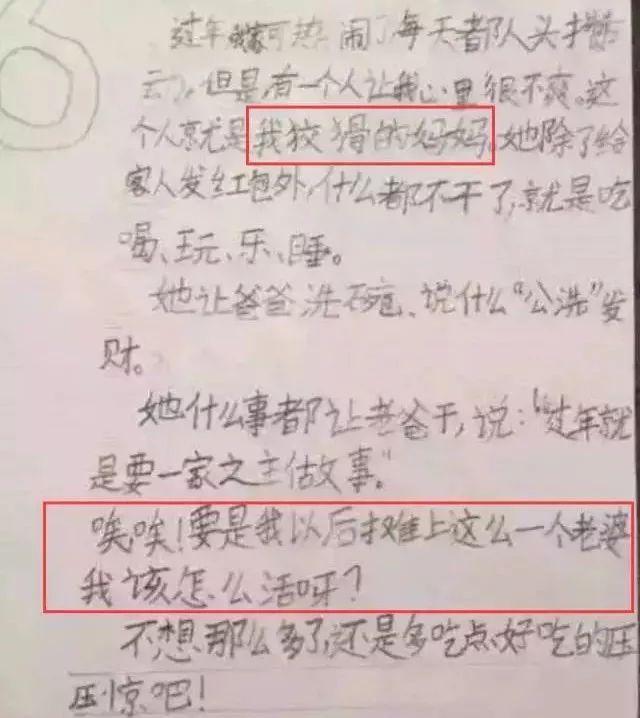 过年我家可热闹了每天都人头攒
动,但是,有一个人让我心里很不爽。这
个人就是我狡猾的妈妈,她除了给
客人发红包外,什么都不干了,就是吃
喝、玩、乐、睡。
她让爸爸洗碗、说什么“公洗”发
财。
她什么事都让老爸干,说:“过年就
是要一家之主做故事。”
唉唉!要是我以后摊上这么一个老婆
我该怎么活呀?
不想那么多了,还是多吃点好吃的压
压惊吧!